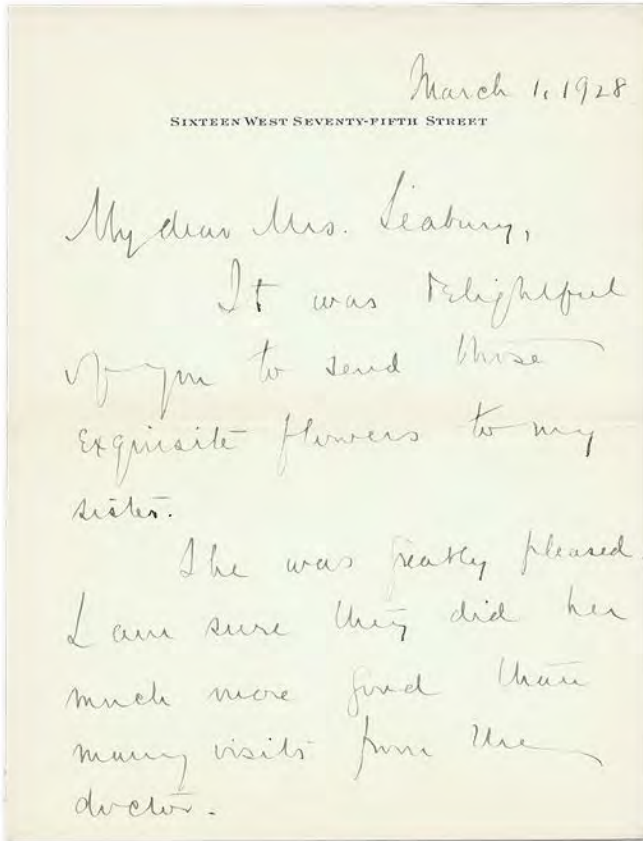 March 1, 1928
SIXTEEN WEST SEVENTY-FIFTH STREET
My dear Mrs. Seabury,
It was delightful
of you to send those
exquisite flowers to my
sister.
She was greatly pleased.
I am sure they did her
much more good than
many visits from the
doctor.